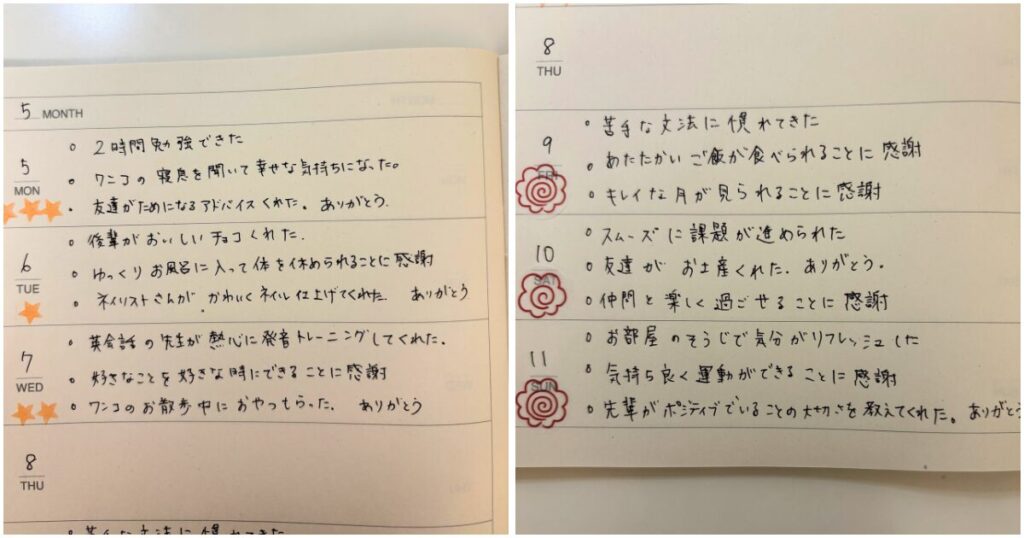 5 MONTH
5
MON
。２時間勉強できた
。ワンコの寝息を聞いて幸せな気持ちになった。
。友達がためになるアドバイスくれた。ありがとう.
6
TUE
。後輩がおいしいチョコくれた.
。ゆっくりお風呂に入って体を休められることに感謝
。ネイリストさんがかわいくネイル仕上げてくれた. ありがとう
7
WED
。英会話の先生が熱心に発音トレーニングしてくれた.
。好きなことを好きな時にできることに感謝
。ワンコのお散歩中におやつもらった. ありがとう
8
THU
。苦手な文法に慣れてきた
8
THU
9
FRI
。苦手な文法に慣れてきた
。あたたかいご飯が食べられることに感謝
。キレイな月が見られることに感謝
10
SAT
。スムーズに課題が進められた
。友達がお土産くれた. ありがとう.
。仲間と楽しく過ごせることに感謝
11
SUN
。お部屋のそうじで気分がリフレッシュした
。気持ち良く運動ができることに感謝
。先輩がポジティブでいることの大切さを教えてくれた。ありがとう